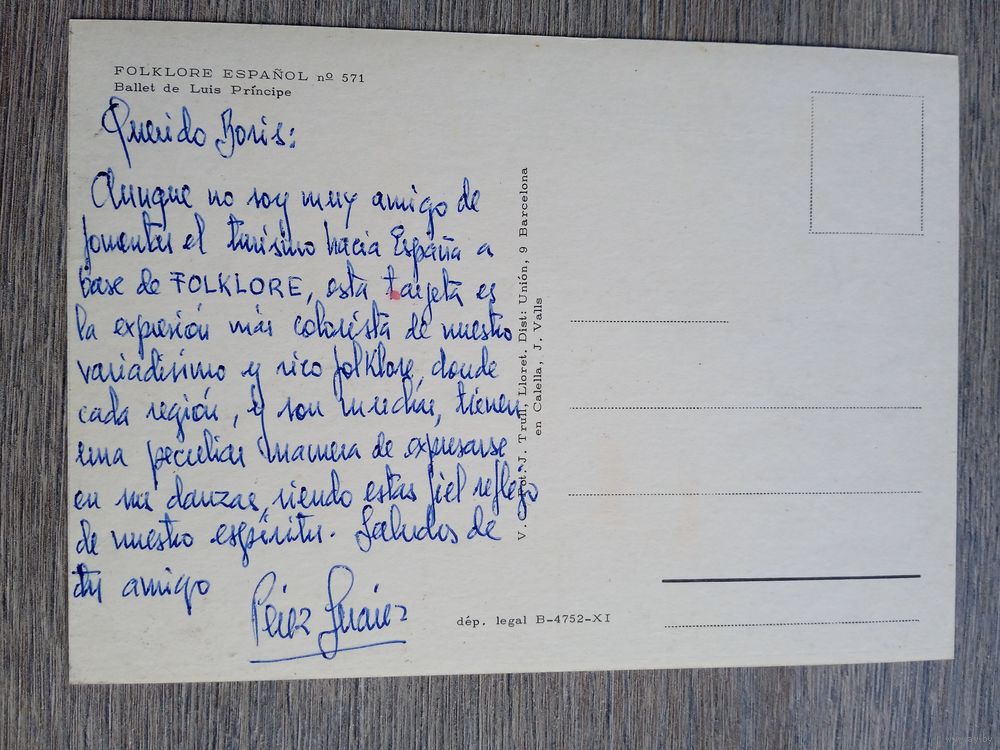 FOLKLORE ESPAÑOL nº 571
Ballet de Luis Príncipe
Querido Boris:
Aunque no soy muy amigo de
fomentar el turismo hacia España a
base de FOLKLORE, esta tarjeta es
la expresión más colorista de nuestro
variadisimo y rico folklore, donde
cada región, y son muchas, tienen
una peculiar manera de expresarse
en sus danzas, siendo estas fiel reflejo
de nuestro espíritu. Saludos de
tu amigo
Pérez Juárez
V. J. Trull, Lloret. Dist: Unión, 9 Barcelona
en Calella, J. Valls
dép. legal B-4752-XI